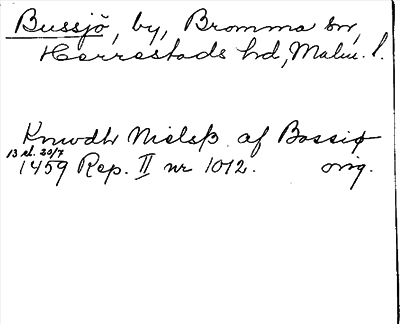 Bussjö, by, Bromma sn,
Herrestads hd, Malm. l.
Knwdh Nielsß af Bossiø
13 el. 20/7
1459 Rep. II nr 1012. orig.